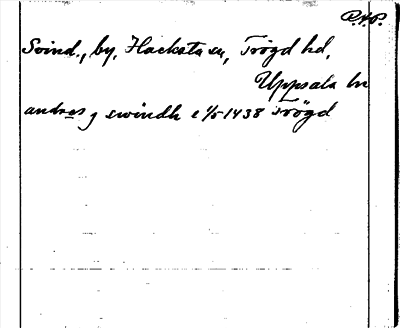 R.A.P.
Svind, by, Hacksta sn, Trögd hd,
Uppsala ln
andres j swindh e 1/5 1438 Trögd